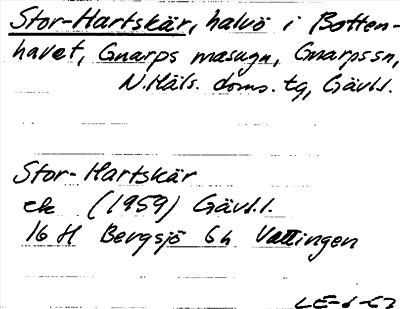 Stor-Hartskär, halvö i Botten-
havet, Gnarps masugn, Gnarps sn,
N. Häls. doms. tg, Gävl.l.
Stor-Hartskär
ek (1959) Gävl.l.
16 H Bergsjö 6h Vattingen